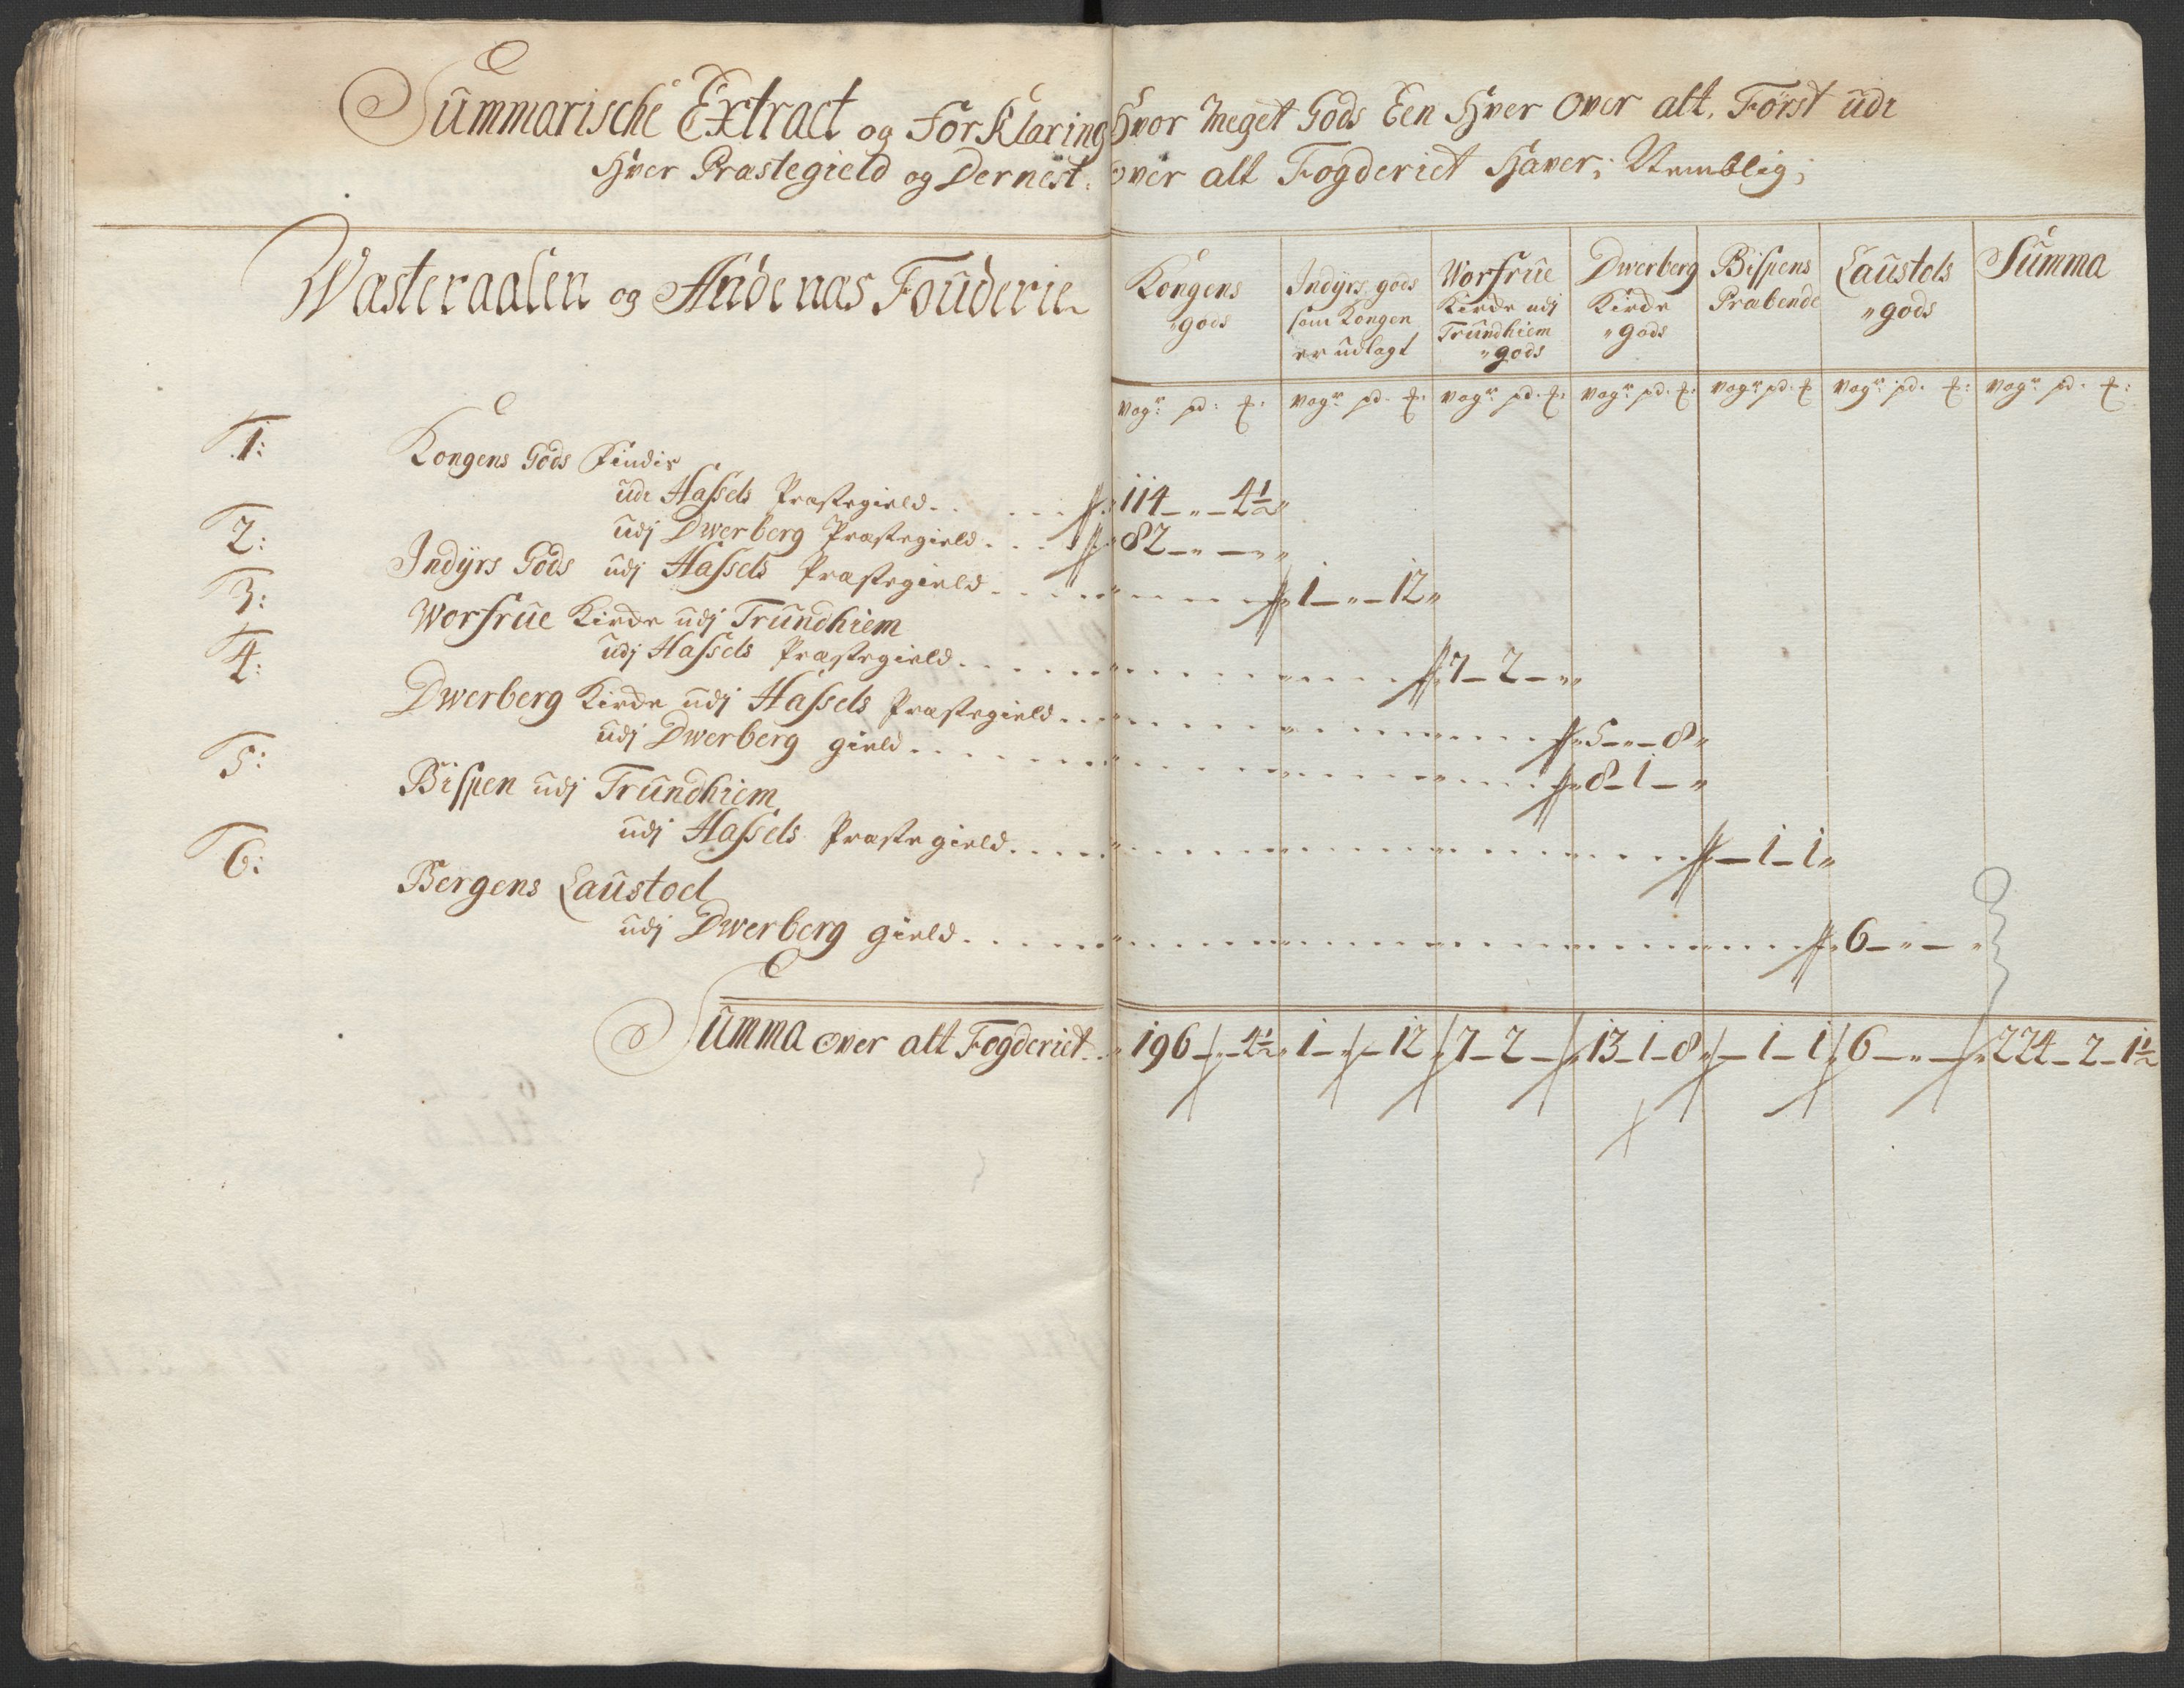 Summarische Extract og Forklaring Hvor Meget Gods Een Hver over alt, Först udi
Hver Præstegield og Dernest over alt Fogderiet Haver; Nemblig;
Wasteraalen og Andenæs Fouderie
Kongens gods
Indÿrs gods som Kongen er udlagt
Worfrue Kirche udj Trundhiem gods
Dwerberg Kirche gods
Bispens Præbende
Laustols gods
Summa
vogr: pd: ℔: vogr: pd. ℔: vogr: pd. ℔: vogr: pd. ℔: vogr: pd. ℔ vogr: pd. ℔: vogr: pd. ℔:
1: Kongens Gods Findis
udi Hassels Præstegield 114 – „ – 4½
udj Dwerberg Præstegield 82 – „ – „
2: Indÿrs Gods udj Hassels Præstegield 1 – „ – 12
3: Worfrue Kirche udj Trundhiem
udj Hassels Præstegield 7 – 2 – „
4: Dwerberg Kirche udj Hassels Præstegield 5 – „ – 8
udj Dwerberg gield 8 – 1 – „
5: Bispen udj Trundhiem
udj Hassels Præstegield – 1 – 1
6: Bergens Laustoel
udj Dwerberg gield 6 – „ – „
Summa over alt Fogderiet 196 – „ – 4½ 1 – „ – 12 7 – 2 – „ 13 – 1 – 8 – 1 – 1 6 – „ – „ 224 – 2 – 1½